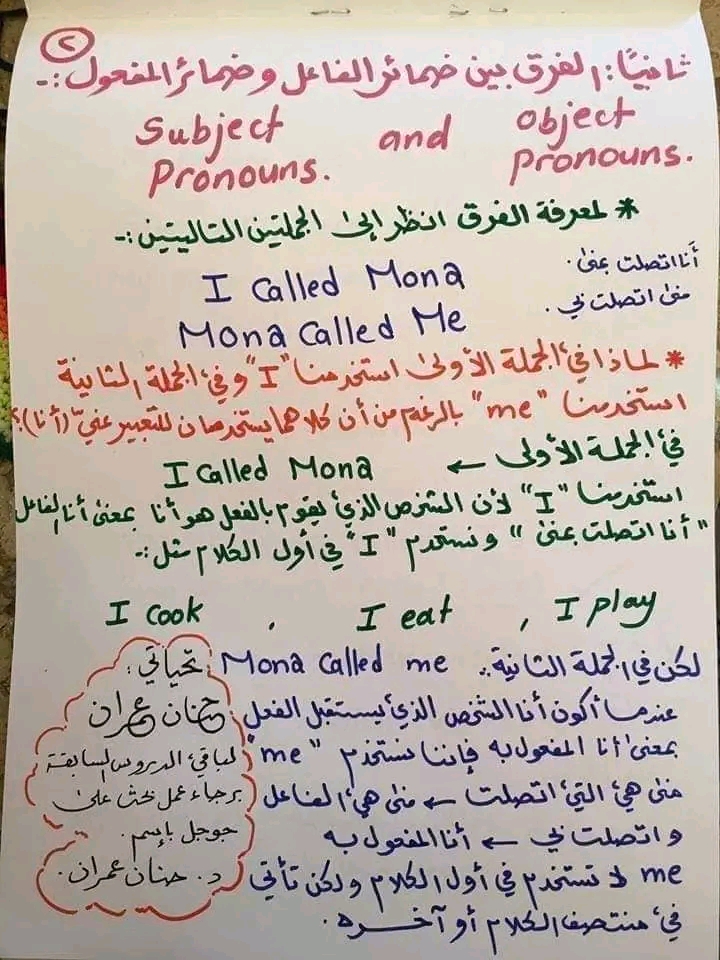 ٢
ثانيًا: الفرق بين ضمائر الفاعل وضمائر المفعول:-
Subject Pronouns. and object pronouns.
* لمعرفة الفرق انظر إلى الجملتين التاليتين:-
I Called Mona
أنا اتصلت بمنى.
Mona Called Me
منى اتصلت بي.
* لماذا في الجملة الأولى استخدمنا "I" وفي الجملة الثانية
استخدمنا "me" بالرغم من أن كلاهما يستخدمان للتعبير عني (أنا)؟
في الجملة الأولى ← I Called Mona
استخدمنا "I" لأن الشخص الذي يقوم بالفعل هو أنا بمعنى أنا الفاعل
"أنا اتصلت بمنى" ونستخدم "I" في أول الكلام مثل:-
I cook , I eat , I play
لكن في الجملة الثانية.. Mona Called me
عندما أكون أنا الشخص الذي يستقبل الفعل
بمعنى أنا المفعول به فإننا نستخدم "me"
منى هي التي اتصلت ← منى هي الفاعل
واتصلت بي ← أنا المفعول به
me لا تستخدم في أول الكلام ولكن تأتي
في منتصف الكلام أو آخره.
تحياتي:
حنان عمران
لباقي الدروس السابقة
برجاء عمل بحث على
جوجل بإسم.
د. حنان عمران.